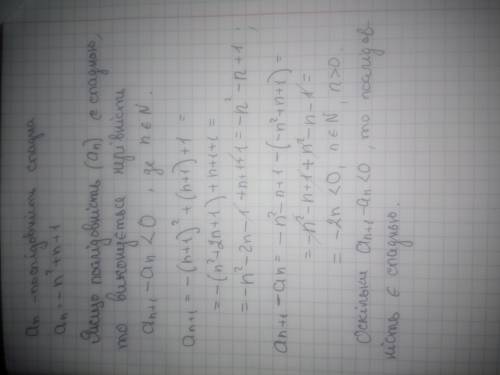 an - послідовність спадна
an = -n² + n + 1
Якщо послідовність (an) є спадною,
то виконується нерівність
an+1 - an < 0, де n ∈ N.
an+1 = -(n+1)² + (n+1) + 1 =
= -(n² + 2n + 1) + n + 1 + 1 =
= -n² - 2n - 1 + n + 1 + 1 = -n² - n + 1;
an+1 - an = -n² - n + 1 - (-n² + n + 1) =
= -n² - n + 1 + n² - n - 1 =
= -2n < 0, n ∈ N, n > 0.
Оскільки an+1 - an < 0, то послідов-
ність є спадною.